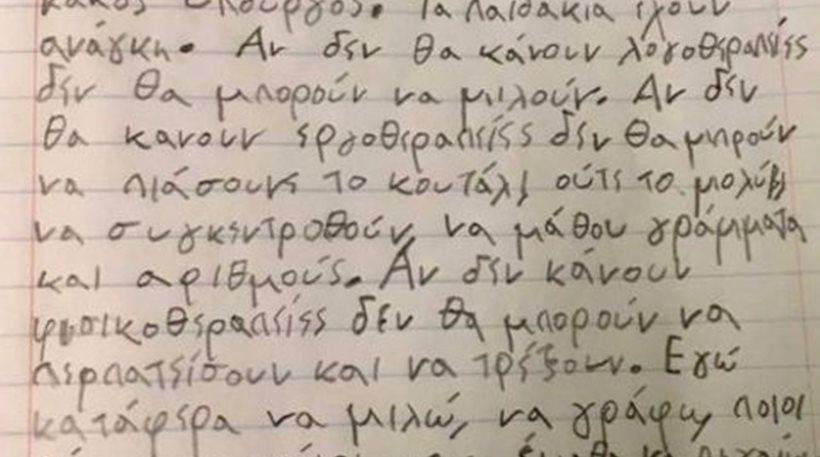 κακός υπουργός. Τα παιδάκια έχουν
ανάγκη. Αν δεν θα κάνουν λόγοθεραπείες
δεν θα μπορούν να μιλούν. Αν δεν
θα κανουν εργοθεραπείες δεν θα μπρούν
να πιάσουνε το κουτάλι ούτε το μολύβι
να συγκεντροθούν, να μάθου γράμματα
και αριθμούς. Αν δεν κάνουν
φυσικοθεραπείες δεν θα μπορούν να
περπατείσουν και να τρέξουν. Εγώ
κατάφερα να μιλώ, να γράφω, ποιοι